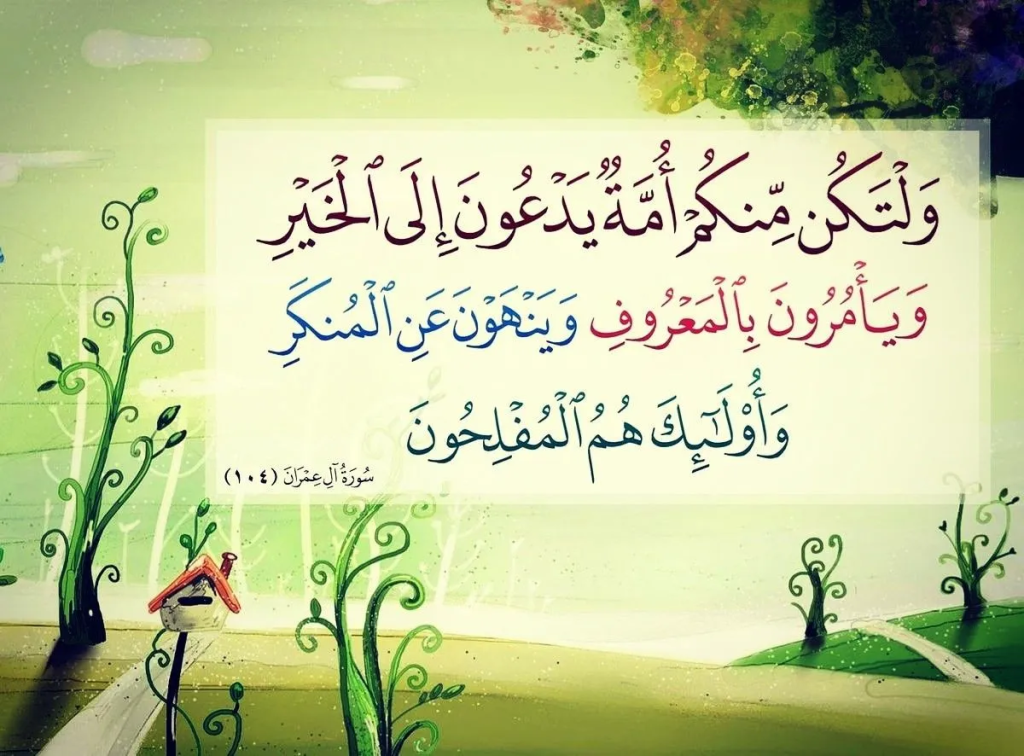 وَلْتَكُن مِّنكُمْ أُمَّةٌ يَدْعُونَ إِلَى ٱلْخَيْرِ
وَيَأْمُرُونَ بِٱلْمَعْرُوفِ وَيَنْهَوْنَ عَنِ ٱلْمُنكَرِ
وَأُوْلَٰٓئِكَ هُمُ ٱلْمُفْلِحُونَ
سُورَةُ آلِ عِمْرَانَ (١٠٤)